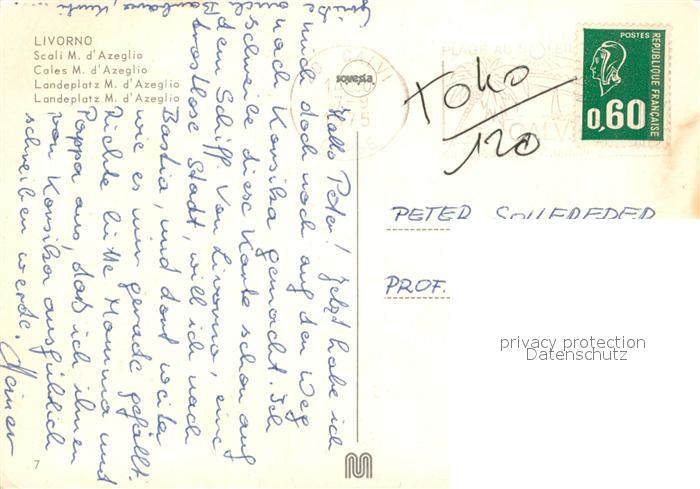 LIVORNO
Scali M. d'Azeglio
Cales M. d'Azeglio
Landeplatz M. d'Azeglio
Landeplatz M. d'Azeglio
sovesta
CALVI
PLAGE AU SOLEIL
CALVI
POSTES
REPUBLIQUE FRANCAISE
0,60
Toko
120
PETER
PROF.
Hallo Peter! Jetzt habe ich
mich doch noch auf den Weg
nach Korsika gemacht. Ich
schreibe diese Karte schon auf
dem Schiff. Von Livorno, eine
trostlose Stadt, will ich nach
Bastia, und dort weiter
wie es mir gerade gefällt.
Richte bitte Mamma und
Pappa aus, daß ich ihnen
von Korsika ausführlich
schreiben werde.
Heiner
7
privacy protection
Datenschutz